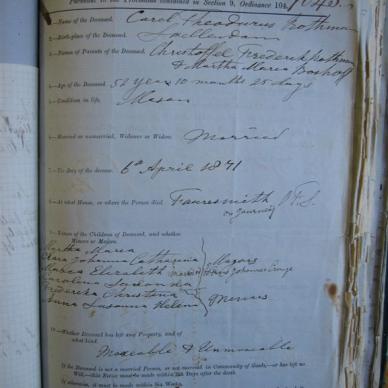 Pursuant to the Provisions contained in Section 9, Ordinance 104
1.—Name of the Deceased. Carel Theodurus Rothman
2.—Birth-place of the Deceased. Swellendam
3.—Names of Parents of the Deceased. Christoffel Frederick Rothman
& Martha Maria Boshoff
4.—Age of the Deceased. 52 years 10 months 25 days
5.—Condition in life. Mason
6.—Married or unmarried, Widower or Widow. Married
7.—The Day of the decease. 6th April 1871
8.—At what House, or where the Person died. Fauresmith O F S
on Journey
9.—Names of the Children of Deceased, and whether
Minors or Majors.
Martha Maria
Clara Johanna Catharina
Majors
Maria Elizabeth
Carolina
Frederika Christina
Minors
Anna Susanna Helena
10.—Whether Deceased has left any Property, and of
what kind.
Moveable & Unmovable
If the Deceased is not a married Person, or not married in Community of Goods,—or has left no
Will,—this Notice must be made within Days after the death.
If otherwise, it must be made within Six Weeks.